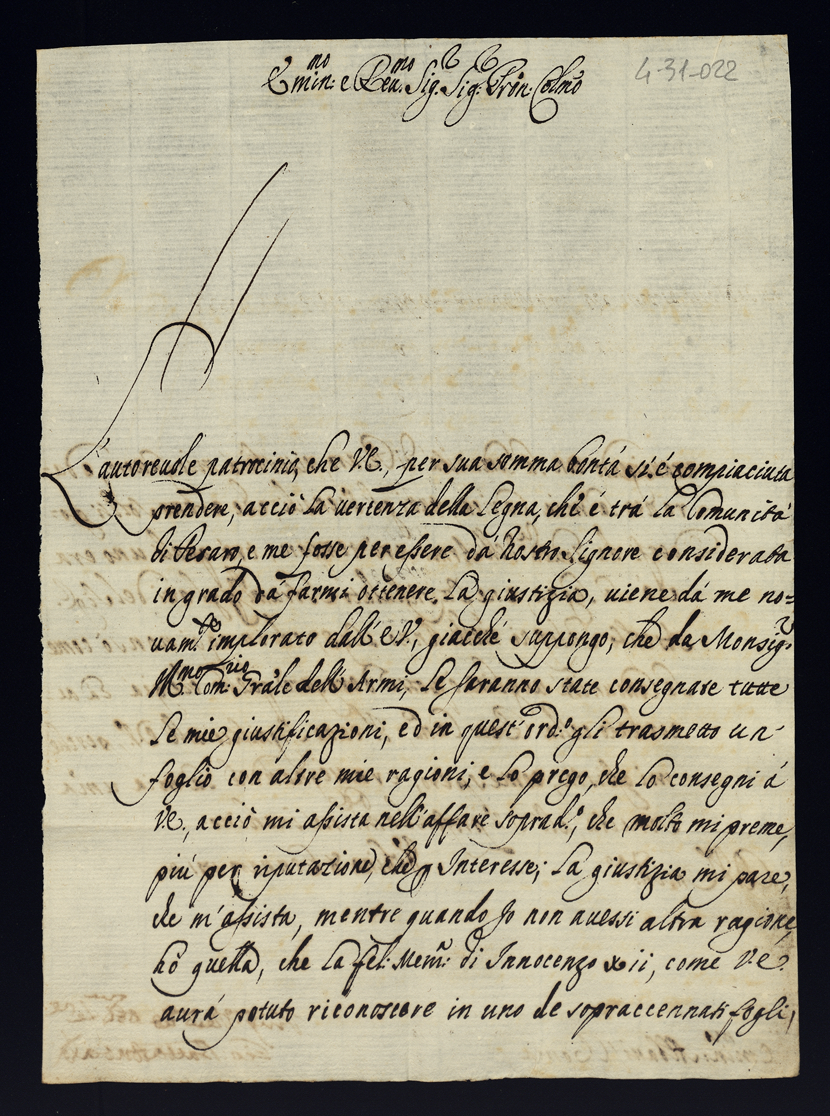 Emin:mo e Reu:mo Sig:r Sig:r Prōn: Colmō
4-31-022
L'autoreuole patrocinio, che V.E., per sua somma bontá si é compiaciuta
prendere, acciò la uertenza della Legna, che é trá la Comunitá
di Pesaro, e me fosse per essere dá Nostro Signore considerata
in grado dá farmi ottenere la giustizia, uiene dá me no=
uam:te implorato dall'E.V., giacché suppongo, che da Monsig:r
Ill:mo Com:rio Grāle dell'Armi, le saranno state consegnate tutte
le mie giustificazioni, ed in quest'ord:o gli trasmetto un'
foglio con altre mie ragioni, e lo prego, che lo consegni á
V.E., acciò mi assista nell'affare soprad:o, che molto mi preme,
piú per riputazione, che p Interesse; La giustizia mi pare,
che m'assista, mentre quando Io non auessi altra ragione,
hò quella, che la fel: Mem: di Innocenzo xii, come V.E.
aurá potuto riconoscere in uno de sopraccennati fogli,